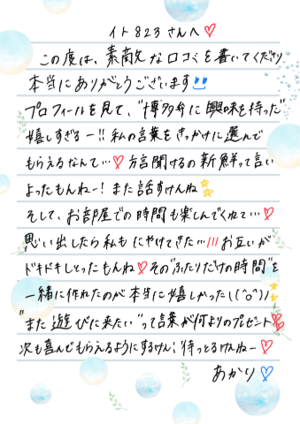 イト823さんへ♡
この度は、素敵な口コミを書いてくださり
本当にありがとうございます
プロフィールを見て、"博多弁に興味を持った"
嬉しすぎるー!!私の言葉をきっかけに選んで
もらえるなんて…♡方言聞けるの新鮮って言い
よったもんねー!また話すけんね
そして、お部屋での時間も楽しんでくれて…♡
思い出したら私もにやけてきた…///お互いが
ドキドキしとったもんね♡その"ふたりだけの時間"を
一緒に作れたのが本当に嬉しかった\(^o^)/
"また遊びに来たい"って言葉が何よりのプレゼント
次も喜んでもらえるようにするけん、待っとるけんねー♡
あかり♡